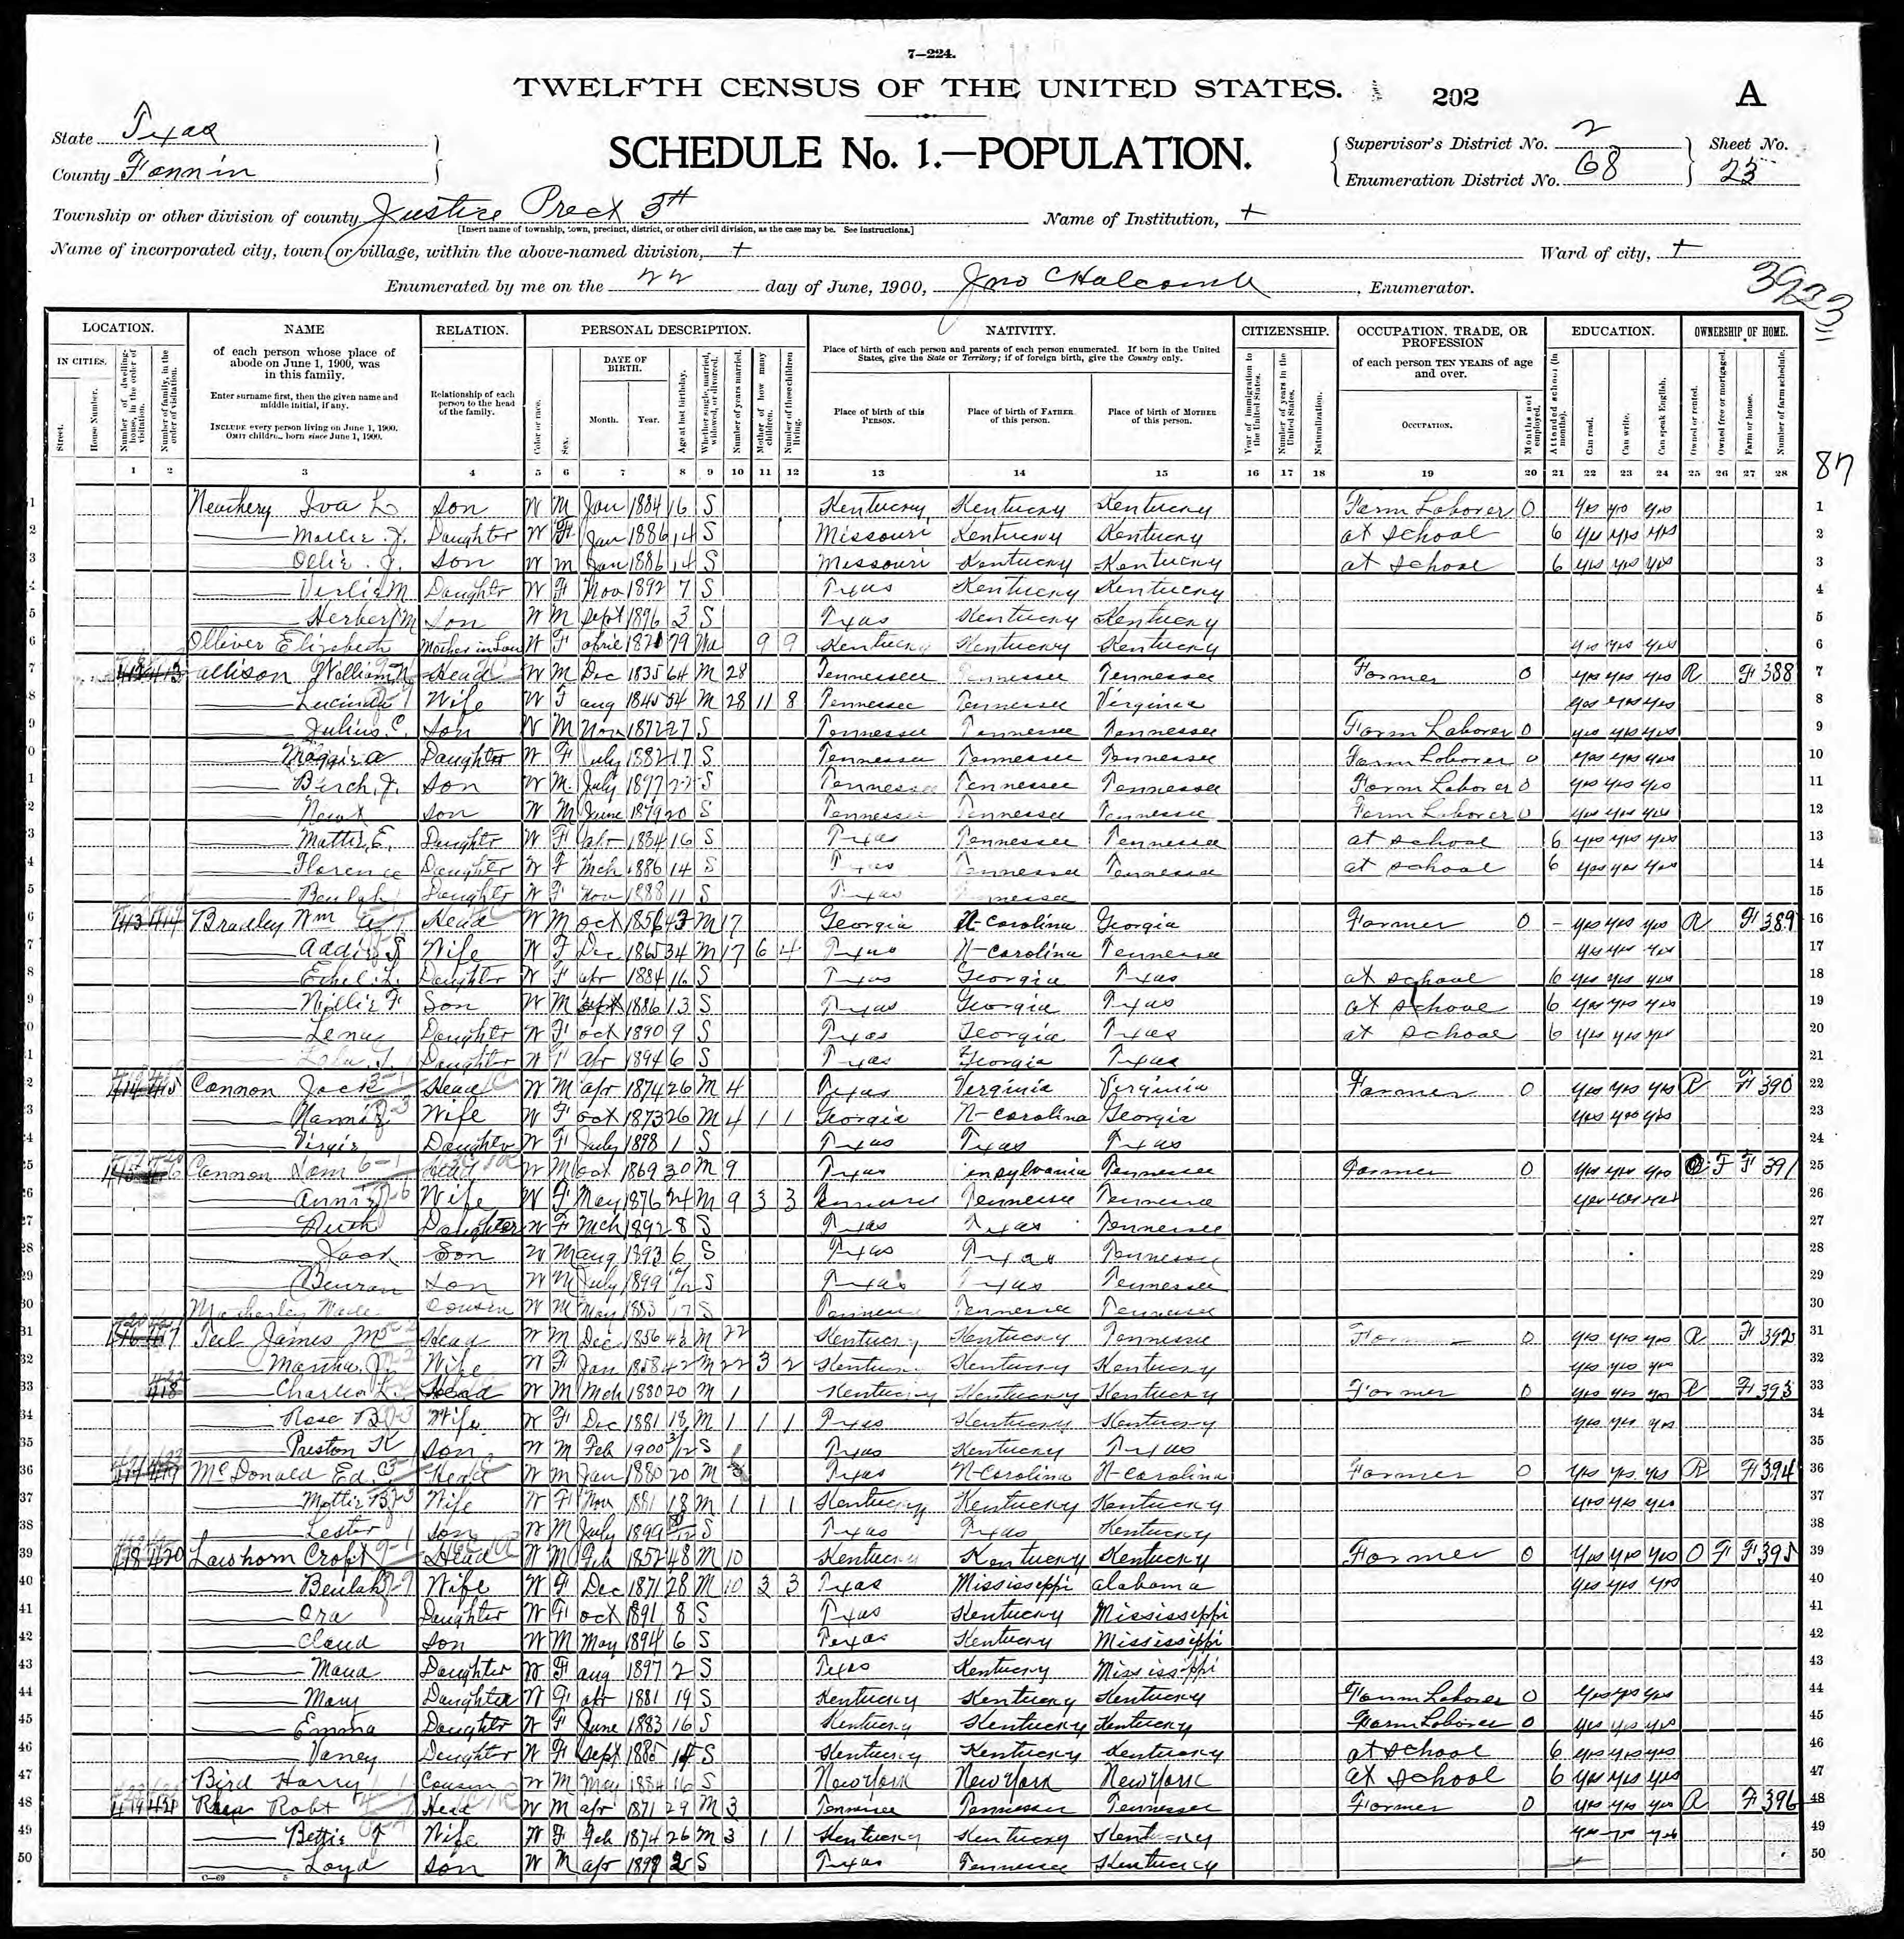 7—224.
TWELFTH CENSUS OF THE UNITED STATES. 202 A
State Texas
County Fannin
SCHEDULE No. 1.—POPULATION.
Supervisor's District No. 2
Enumeration District No. 68
Sheet No. 23
Township or other division of county Justice Prect 3th
[Insert name of township, town, precinct, district, or other civil division, as the case may be. See instructions.]
Name of Institution, +
Name of incorporated city, town, or village, within the above-named division, +
Ward of city, +
Enumerated by me on the 22 day of June, 1900, Jno C Halcomb, Enumerator.
3923
LOCATION. NAME RELATION. PERSONAL DESCRIPTION. NATIVITY. CITIZENSHIP. OCCUPATION, TRADE, OR PROFESSION EDUCATION. OWNERSHIP OF HOME.
IN CITIES. Street. House Number. Number of dwelling-house, in the order of visitation. Number of family, in the order of visitation.
of each person whose place of abode on June 1, 1900, was in this family.
Enter surname first, then the given name and middle initial, if any.
INCLUDE every person living on June 1, 1900. OMIT children born since June 1, 1900.
Relationship of each person to the head of the family.
Color or race. Sex. DATE OF BIRTH. Month. Year. Age at last birthday. Whether single, married, widowed, or divorced. Number of years married. Mother of how many children. Number of these children living.
Place of birth of each person and parents of each person enumerated. If born in the United States, give the State or Territory; if of foreign birth, give the Country only.
Place of birth of this PERSON. Place of birth of FATHER of this person. Place of birth of MOTHER of this person.
Year of immigration to the United States. Number of years in the United States. Naturalization.
of each person TEN YEARS of age and over.
OCCUPATION. Months not employed. Attended school (in months). Can read. Can write. Can speak English. Owned or rented. Owned free or mortgaged. Farm or house. Number of farm schedule.
1 2 3 4 5 6 7 8 9 10 11 12 13 14 15 16 17 18 19 20 21 22 23 24 25 26 27 28
87
Iva L Son W M Jan 1884 16 S Kentucky Kentucky Kentucky Farm Laborer 0 yes yes 1
Mollie Daughter W F Jan 1886 14 S Missouri Kentucky Kentucky at school 6 yes yes yes 2
Ollie J. Son W M Jan 1886 14 S Missouri Kentucky Kentucky at school 6 yes yes yes 3
M Daughter W F Nov 1892 7 S Texas Kentucky Kentucky 4
Herbert M Son W M Sept 1896 3 S Texas Kentucky Kentucky 5
Olliver Elizabeth Mother in Law W F april 79 9 9 Kentucky Kentucky Kentucky yes yes yes 6
allison William N Head W M Dec 1835 64 M 28 Tennessee Tennessee Tennessee Farmer 0 yes yes yes R F 388 7
Lucinda Wife W F aug 1845 54 M 28 11 8 Tennessee Tennessee Virginia yes yes yes 8
Julius C. Son W M Nov 1872 27 S Tennessee Tennessee Tennessee Farm Laborer 0 yes yes yes 9
Maggie a Daughter W F July 1882 17 S Tennessee Tennessee Tennessee Farm Laborer 0 yes yes yes 10
Birch. J. Son W M. July 1877 22 S Tennessee Tennessee Tennessee Farm Laborer 0 yes yes yes 11
Newt Son W M June 1879 20 S Tennessee Tennessee Tennessee Farm Laborer 0 yes yes yes 12
Mattie E. Daughter W F apr 1884 16 S Texas Tennessee Tennessee at school 6 yes yes yes 13
Florence Daughter W F Mch 1886 14 S Texas Tennessee Tennessee at school 6 yes yes yes 14
Beulah Daughter W F Nov 1888 11 S Texas Tennessee 15
413 414 Bradley Wm a Head W M Oct 1856 43 M 17 Georgia N-Carolina Georgia Farmer 0 - yes yes yes R F 389 16
addie S Wife W F Dec 1865 34 M 17 6 4 Texas N-Carolina Tennessee yes yes yes 17
Ethel L. Daughter W F apr 1884 16 S Texas Georgia Texas at school 6 yes yes yes 18
Willie F Son W M Sept 1886 13 S Texas Georgia Texas at school 6 yes yes yes 19
Lena Daughter W F Oct 1890 9 S Texas Georgia Texas at school 6 yes yes yes 20
Daughter W F apr 1894 6 S Texas Georgia Texas 21
414 415 Cannon Jack Head W M apr 1874 26 M 4 Texas Virginia Virginia Farmer 0 yes yes yes R F 390 22
Nannie Wife W F Oct 1873 26 M 4 1 1 Georgia N-Carolina Georgia yes yes yes 23
Virgie Daughter W F July 1898 1 S Texas Texas Texas 24
415 416 Cannon Sam Head W M Oct 1869 30 M 9 Texas Tennessee Farmer 0 yes yes yes O F F 391 25
Annie Wife W F May 1876 24 M 9 3 3 Tennessee Tennessee Tennessee yes yes yes 26
Ruth Daughter W F Mch 1892 8 S Texas Texas Tennessee 27
Jack Son W M aug 1893 6 S Texas Texas Tennessee 28
Son W M July 1899 S Texas Texas Tennessee 29
Cousin W M May 1883 17 S Tennessee Tennessee Tennessee 30
416 417 Teel James M Head W M Dec 1856 43 M 22 Kentucky Kentucky Tennessee Farmer 0 yes yes yes R F 392 31
Martha J Wife W F Jan 1858 42 M 22 3 2 Kentucky Kentucky Kentucky yes yes yes 32
418 Charles L. Head W M Mch 1880 20 M 1 Kentucky Kentucky Kentucky Farmer 0 yes yes yes R F 393 33
Rose B Wife W F Dec 1881 18 M 1 1 1 Texas Kentucky Kentucky yes yes yes 34
Preston K Son W M Feb 1900 3/12 S Texas Kentucky Texas 35
417 419 McDonald Ed. C Head W M Jan 1880 20 M Texas N-Carolina N-Carolina Farmer 0 yes yes yes R F 394 36
Mattie B Wife W F Nov 1881 18 M 1 1 1 Kentucky Kentucky Kentucky yes yes yes 37
Lester Son W M July 1899 S Texas Texas Kentucky 38
418 420 Lawhorn Croft Head W M Feb 1852 48 M 10 Kentucky Kentucky Kentucky Farmer 0 yes yes yes O F F 395 39
Beulah Wife W F Dec 1871 28 M 10 3 3 Texas Mississippi alabama yes yes yes 40
Ora Daughter W F Oct 1891 8 S Texas Kentucky Mississippi 41
Claud Son W M May 1894 6 S Texas Kentucky Mississippi 42
Maud Daughter W F aug 1897 2 S Texas Kentucky Mississippi 43
Mary Daughter W F apr 1881 19 S Kentucky Kentucky Kentucky Farm Laborer 0 yes yes yes 44
Emma Daughter W F June 1883 16 S Kentucky Kentucky Kentucky Farm Laborer 0 yes yes yes 45
Daughter W F Sept 1885 14 S Kentucky Kentucky Kentucky at school 6 yes yes yes 46
Bird Harry Cousin W M May 1884 16 S New York New York New York at school 6 yes yes yes 47
419 421 Robt Head W M apr 1871 29 M 3 Tennessee Tennessee Tennessee Farmer 0 yes yes yes R F 396 48
Bettie Wife W F Feb 1874 26 M 3 1 1 Kentucky Kentucky Kentucky yes yes 49
Loyd Son W M apr 1898 2 S Texas Tennessee Kentucky 50